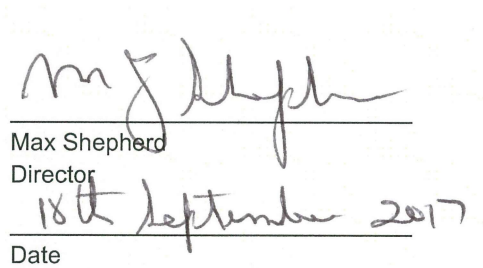 M J Sheph
Max Shepherd
Director
18th September 2017
Date